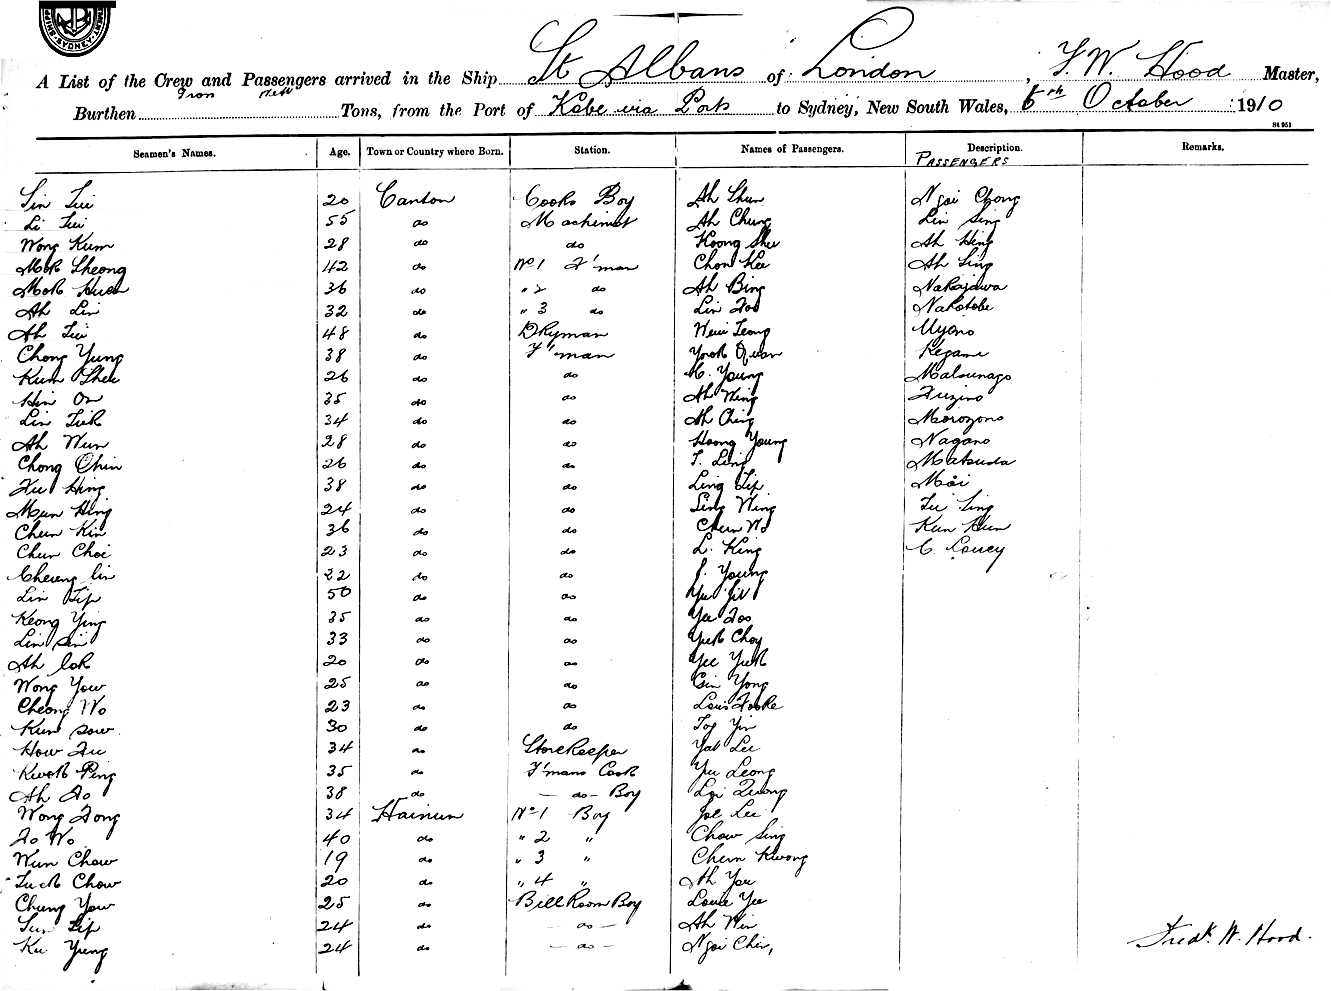 SYDNEY
A List of the Crew and Passengers arrived in the Ship St Albans of London, F. W. Hood Master,
Burthen Tons, from the Port of Kobe via Ports to Sydney, New South Wales, 5th October 1910
St 951
Seamen's Names. Age. Town or Country where Born. Station. Names of Passengers. Description. Remarks.
PASSENGERS
Sin Tui 20 Canton Cooks Boy Ah Shun Ngai Chong
Li Tui 55 do Machinist Ah Chung Lin Sing
Wong Kum 28 do do Koong Shu Ah Hing
Mok Sheong 42 do No 1 F'man Chon Kee Ah Sing
Mok Huen 36 do " 2 do Ah Bing Nakajawa
Ah Lin 32 do " 3 do Lin Foo Nakatobe
Ah Tui 48 do Dkyman Leong Uyeno
Chong Yung 38 do F'man Yook Quan Kegami
Kum Shee 26 do do M. Young Matsunago
Hin On 35 do do Ah Wing Fuzino
Lin Tuk 34 do do Ah Ching Morozono
Ah Wun 28 do do Hoong Young Nagano
Chong Chin 26 do do T. Ling Matsuda
Fu Hing 38 do do Ling Tip Moi
Mun Hing 24 do do Sing Wing Tu Sing
Chun Kin 36 do do Chun Wo Kun Hun
Chun Choi 23 do do L. King C. Loucy
Cheung lin 22 do do J. Young
Lin Tip 50 do do Yu Jit
Keong Ying 35 do do Yee Foo
Lin Sin 33 do do Yuk Choy
Ah Lok 20 do do Yee Yuek
Wong Yow 25 do do Gin Yong
Cheong Wo 23 do do Louis Fooke
Kun Sow 30 do do Toy Yin
How Fu 34 do Storekeeper Yat Lee
Kwok Ping 35 do F'mans Cook Yu Leong
Ah Fo 38 do — do — Boy Loi Quong
Wong Fong 34 Hainun No 1 Boy Joe Lee
Fo Wo 40 do " 2 " Chow Sing
Wun Chow 19 do " 3 " Chun Kwong
Tuck Chow 20 do " 4 " Ah Yee
Chung Yow 25 do Bill Room Boy Louie Yee
Sun Tip 24 do — do — Ah Win
Ku Yueng 24 do — do — Ngai Chin,
Fredk. W. Hood.